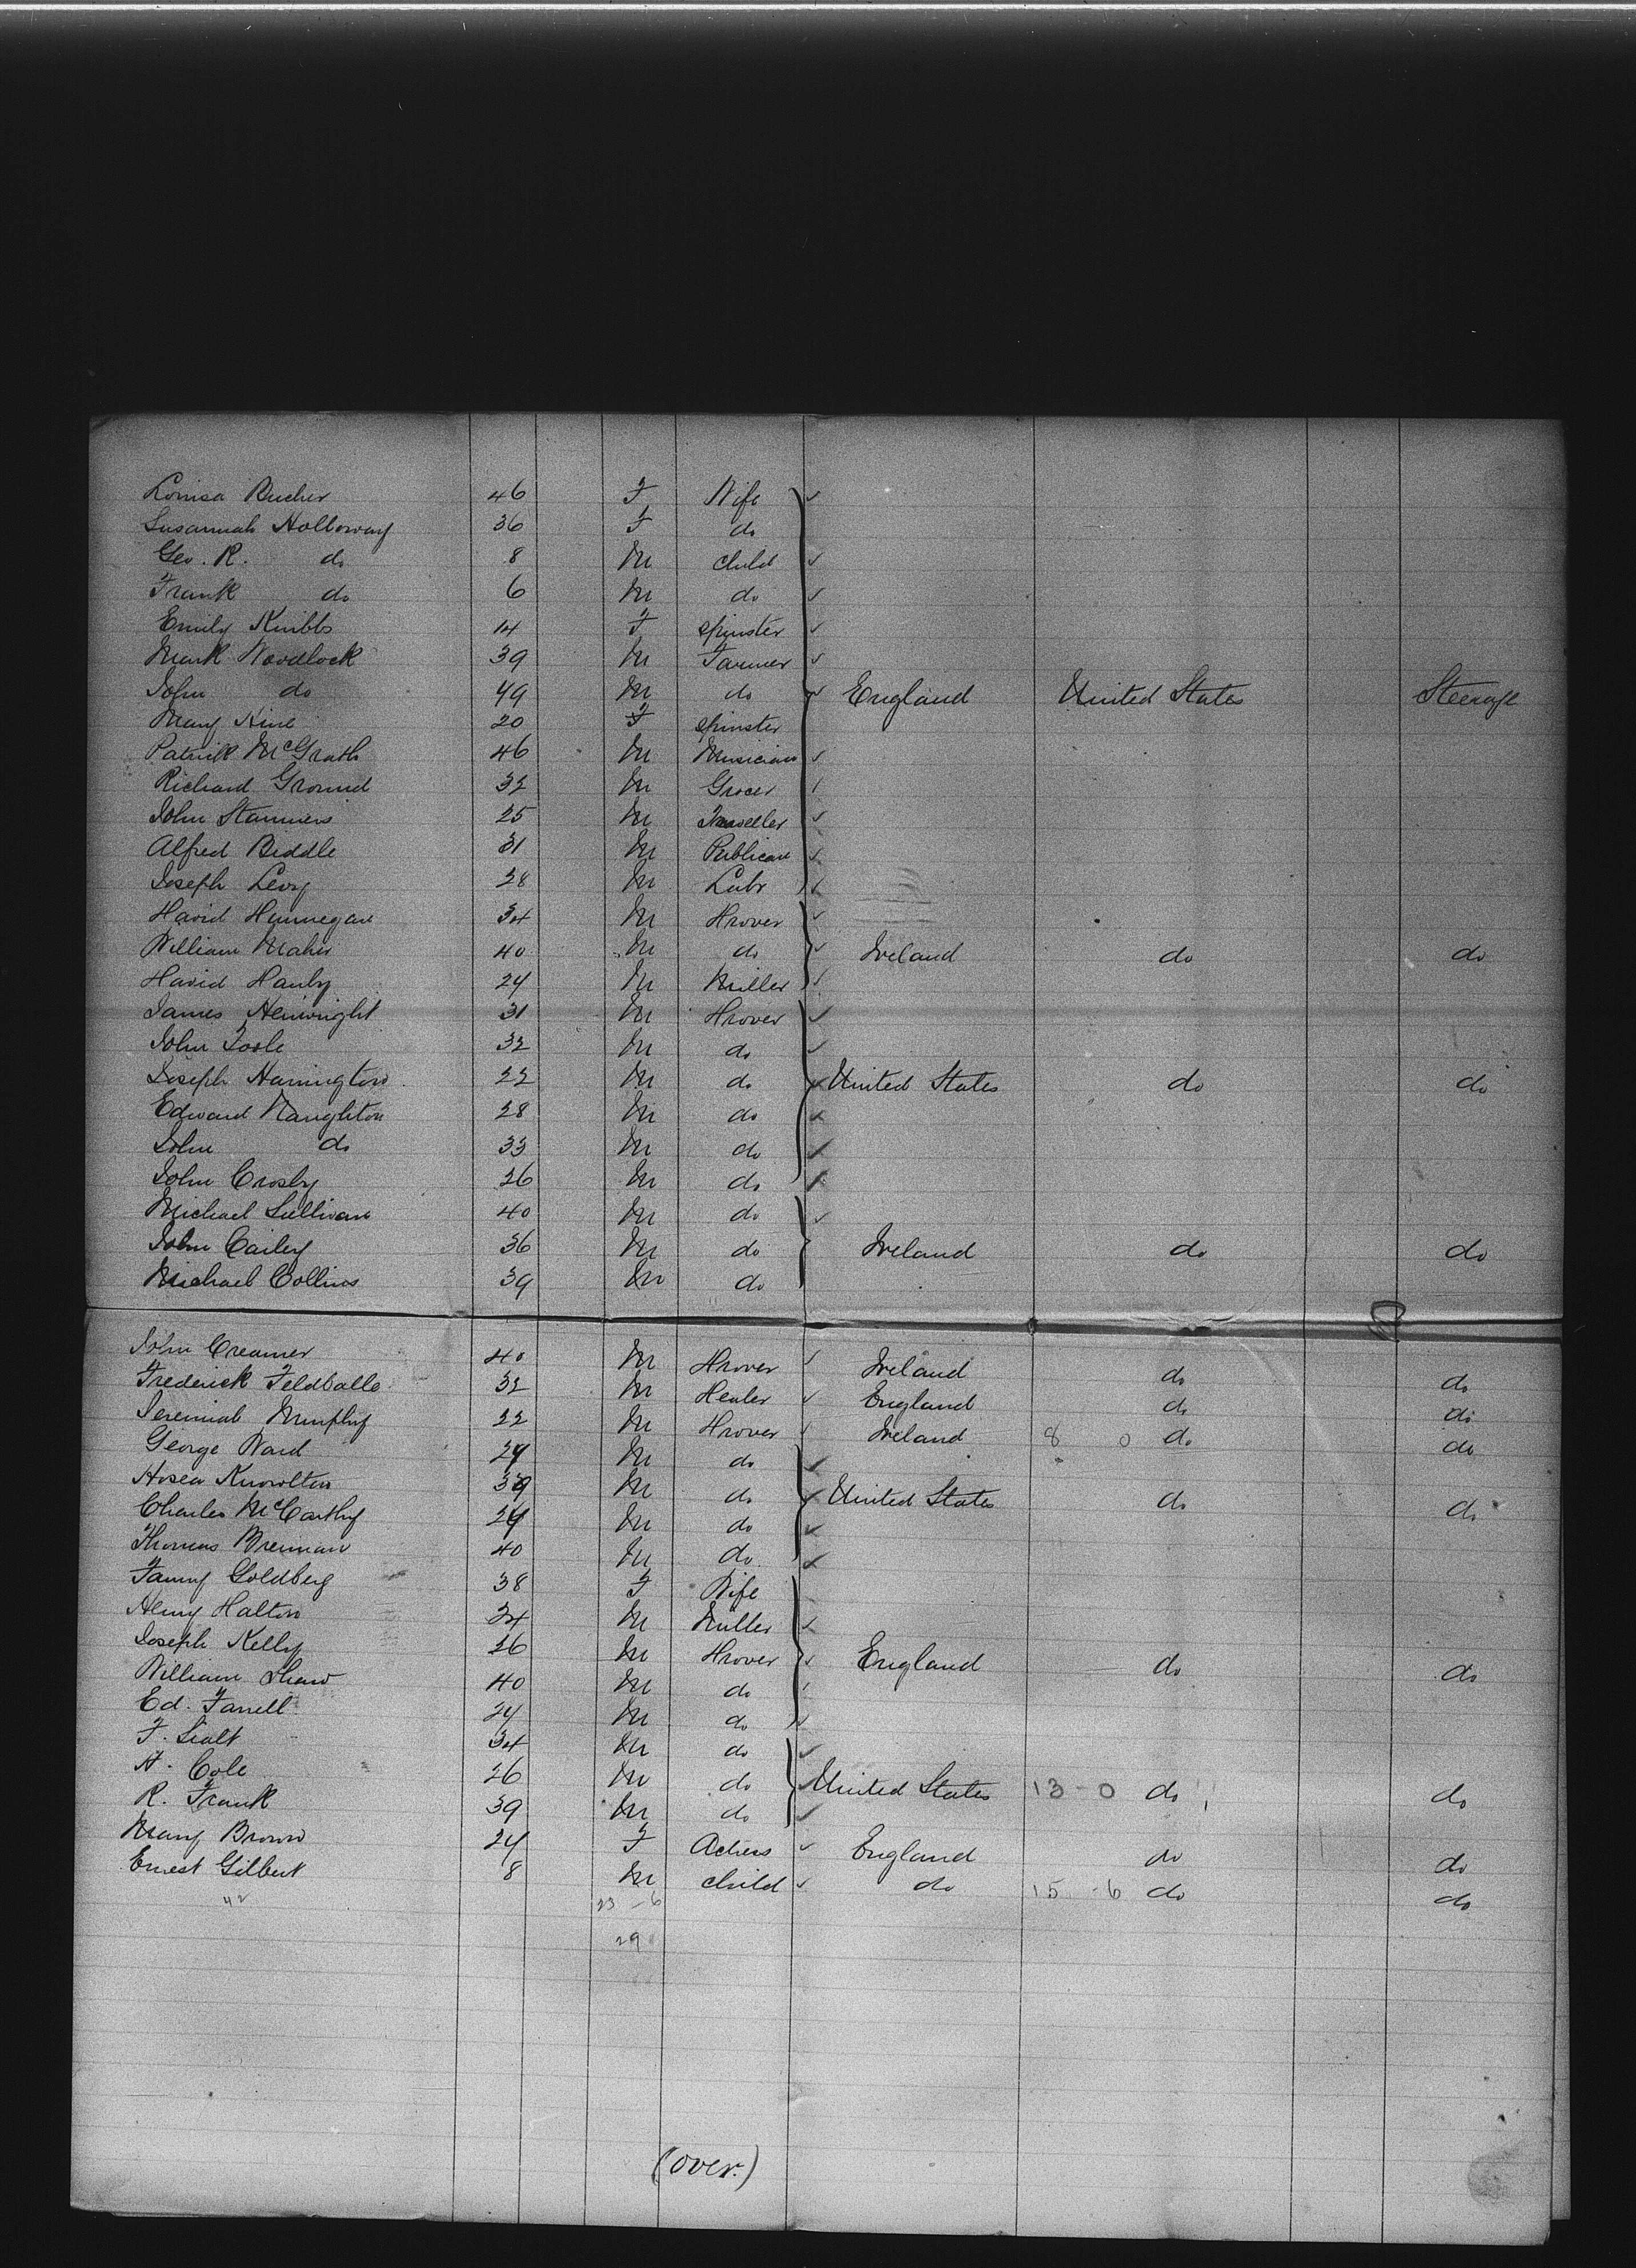 Louisa Bucher 46 F Wife
Susannah Holloway 36 F do
Geo. R. do 8 M child
Frank do 6 M do
Emily Knibbs 14 F spinster
Mark Woodlock 39 M Farmer
John do 49 M do England United States Steerage
Mary Kine 20 F spinster
Patrick McGrath 46 M Musician
Richard Ground 32 M Grocer
John Stanners 25 M Traveller
Alfred Biddle 31 M Publican
Joseph Levy 28 M Labr
David Hunnegan 34 M Drover
William Maher 40 M do Ireland do do
David Hanby 24 M Miller
James Heinright 31 M Drover
John Toole 32 M do
Joseph Harrington 22 M do United States do do
Edward Naughton 28 M do
John do 33 M do
John Crosby 26 M do
Michael Sullivan 40 M do
John Cailey 36 M do Ireland do do
Michael Collins 39 M do
John Creamer 40 M Drover Ireland do do
Frederick Feldballe 32 M Dealer England do do
Jeremiah Murphy 22 M Drover Ireland 8 0 do do
George Ward 24 M do
Hosea Knowlton 39 M do United States do do
Charles McCarthy 24 M do
Thomas Brennan 40 M do
Fanny Goldberg 38 F Wife
Henry Halton 24 M Miller
Joseph Kelly 26 M Drover England do do
William Shaw 40 M do
Ed. Farrell 24 M do
F. Sialt 34 M do
H. Cole 26 M do United States 13 0 do do
R. Frank 39 M do
Mary Brown 24 F Actress England do do
Ernest Gilbert 8 M child do 15 - 6 do do
42 23 - 6
29
(over.)